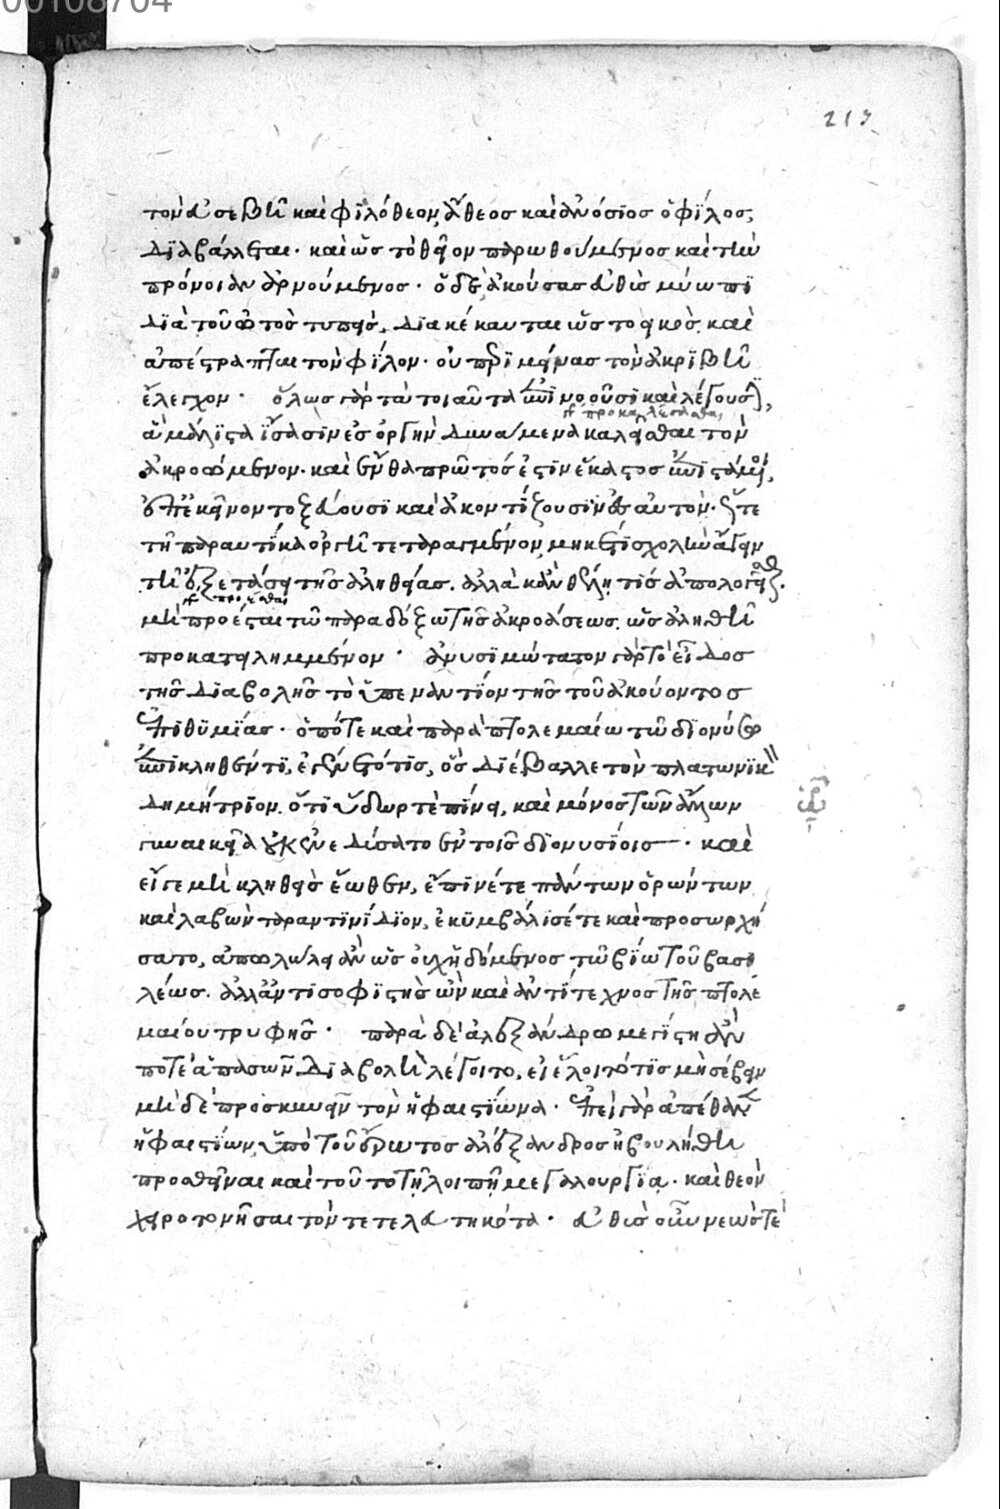 00108704
213
τὸν εὐσεβῆ καὶ φιλόθεον, ἄθεος καὶ ἀνόσιος ὁ φίλος
διαβάλλεται· καὶ ὡς τὸ θεῖον παρωθούμενος καὶ τὴν
πρόνοιαν ἀρνούμενος· ὁ δὲ ἀκούσας εὐθὺς μύωπι
διὰ τοῦ ὠτὸς τυπεὶς, διακέκαυται ὡς τὸ εἰκὸς. καὶ
ἀπέστραπται τὸν φίλον· οὐ περιμείνας τὸν ἀκριβῆ
ἔλεγχον· ὅλως γὰρ τὰ τοιαῦτα ἐπινοοῦσι καὶ λέγουσιν,
προκαλέσασθαι
ἃ μάλιστα ἴσασιν ἐς ὀργὴν δυνάμενα καλεῖσθαι τὸν
ἀκροώμενον· καὶ ἔνθα τρωτός ἐστιν ἕκαστος ἐπιστάμενοι,
ἐπ' ἐκεῖνον τοξεύουσι καὶ ἀκοντίζουσιν ἐς αὐτὸν· ὥστε
τῇ παραυτίκα ὀργῇ τεταραγμένον μηκέτι σχολὴν ἄγειν
τῇ ἐξετάσει τῆς ἀληθείας. ἀλλὰ κἂν θέλῃ τις ἀπολογεῖσθαι.
προσέσθαι
μὴ προσίεσται τῷ παραδόξῳ τῆς ἀκροάσεως. ὡς ἀληθῆ
προκατειλημμένον· ἀνυσιμώτατον γὰρ τὸ εἶδος
τῆς διαβολῆς τὸ ὑπεναντίον τῆς τοῦ ἀκούοντος
ἐπιθυμίας· ὁπότε καὶ παρὰ πτολεμαίῳ τῷ διονύσῳ
ἐπικληθέντι, ἐγένετό τις, ὃς διέβαλλε τὸν πλατωνικὸν
δημήτριον. ὅτι ὕδωρ τε πίνει, καὶ μόνος τῶν ἄλλων
γυναικεῖα οὐκ ἐνεδύσατο ἐν τοῖς διονυσίοις· καὶ
εἴ γε μὴ κληθεὶς ἕωθεν, ἔπινέ τε πάντων ὁρώντων
καὶ λαβὼν ταραντινίδιον, ἐκυμβάλισέ τε καὶ προσωρχή
σατο, ἀπωλώλει ἂν ὡς οὐχ ἡδόμενος τῷ βίῳ τοῦ βασι
λέως. ἀλλ' ἀντισοφιστὴς ὢν καὶ ἀντίτεχνος τῆς πτολε
μαίου τρυφῆς· παρὰ δὲ ἀλεξάνδρῳ μεγίστη ἂν
ποτε ἁπασῶν διαβολὴ λέγοιτο, εἰ λέγοιτό τις μὴ σέβειν
μὴ δὲ προσκυνεῖν τὸν ἡφαιστίωνα· ἐπεὶ γὰρ ἀπέθανεν
ἡφαιστίων, ὑπὸ τοῦ ἔρωτος ἀλέξανδρος ἠβουλήθη
προσθεῖναι καὶ τοῦτο τῇ λοιπῇ μεγαλουργίᾳ· καὶ θεὸν
χειροτονῆσαι τὸν τετελευτηκότα· εὐθὺς οὖν νεώς τε